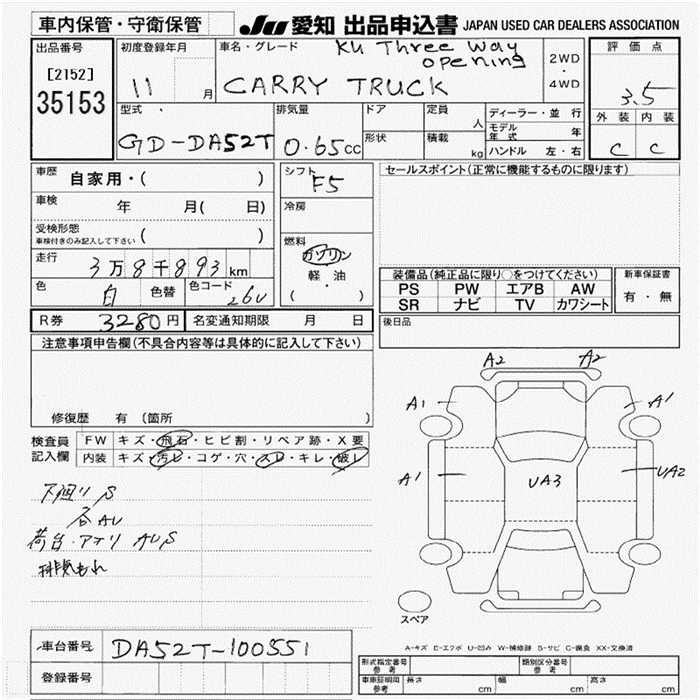 車内保管・守衛保管
JU 愛知 出品申込書 JAPAN USED CAR DEALERS ASSOCIATION
出品番号
[2152]
35153
初度登録年月
11 月
車名・グレード
KU Three way opening
CARRY TRUCK
2WD
・
4WD
評価点
3.5
外装 内装
C C
型式
GD-DA52T
排気量
0.65cc
ドア
形状
定員
人
積載
kg
ディーラー・並行
モデル年式 年
ハンドル 左・右
車歴
自家用・( )
車検
年 月( 日)
受検形態
車検付きのみ記入して下さい ( )
走行
3万8千893km
色
白
色替
色コード
26U
シフト
F5
冷房
燃料
ガソリン
軽・油
( )
セールスポイント(正常に機能するものに限ります)
装備品(純正品に限り○をつけてください)
PS PW エアB AW
SR ナビ TV カワシート
新車保証書
有・無
後日品
R券 3280円
名変通知期限 月 日
注意事項申告欄(不具合内容等は具体的に記入して下さい)
修復歴 有 (箇所 )
検査員記入欄
FW キズ・飛石・ヒビ割・リペア跡・X要
内装 キズ・汚レ・コゲ・穴・スレ・キレ・破レ
下廻り S
各AU
荷台・アオリ AUS
排気もれ
A2 A2
A1 A1
A1 UA3 UA2
スペア
A-キズ E-エクボ U-凹み W-補修跡 S-サビ C-腐食 XX-交換済
車台番号 DA52T-100551
登録番号
形式指定番号
参考
類別区分番号
参考
車庫証明用
参考
長さ cm 幅 cm 高さ cm